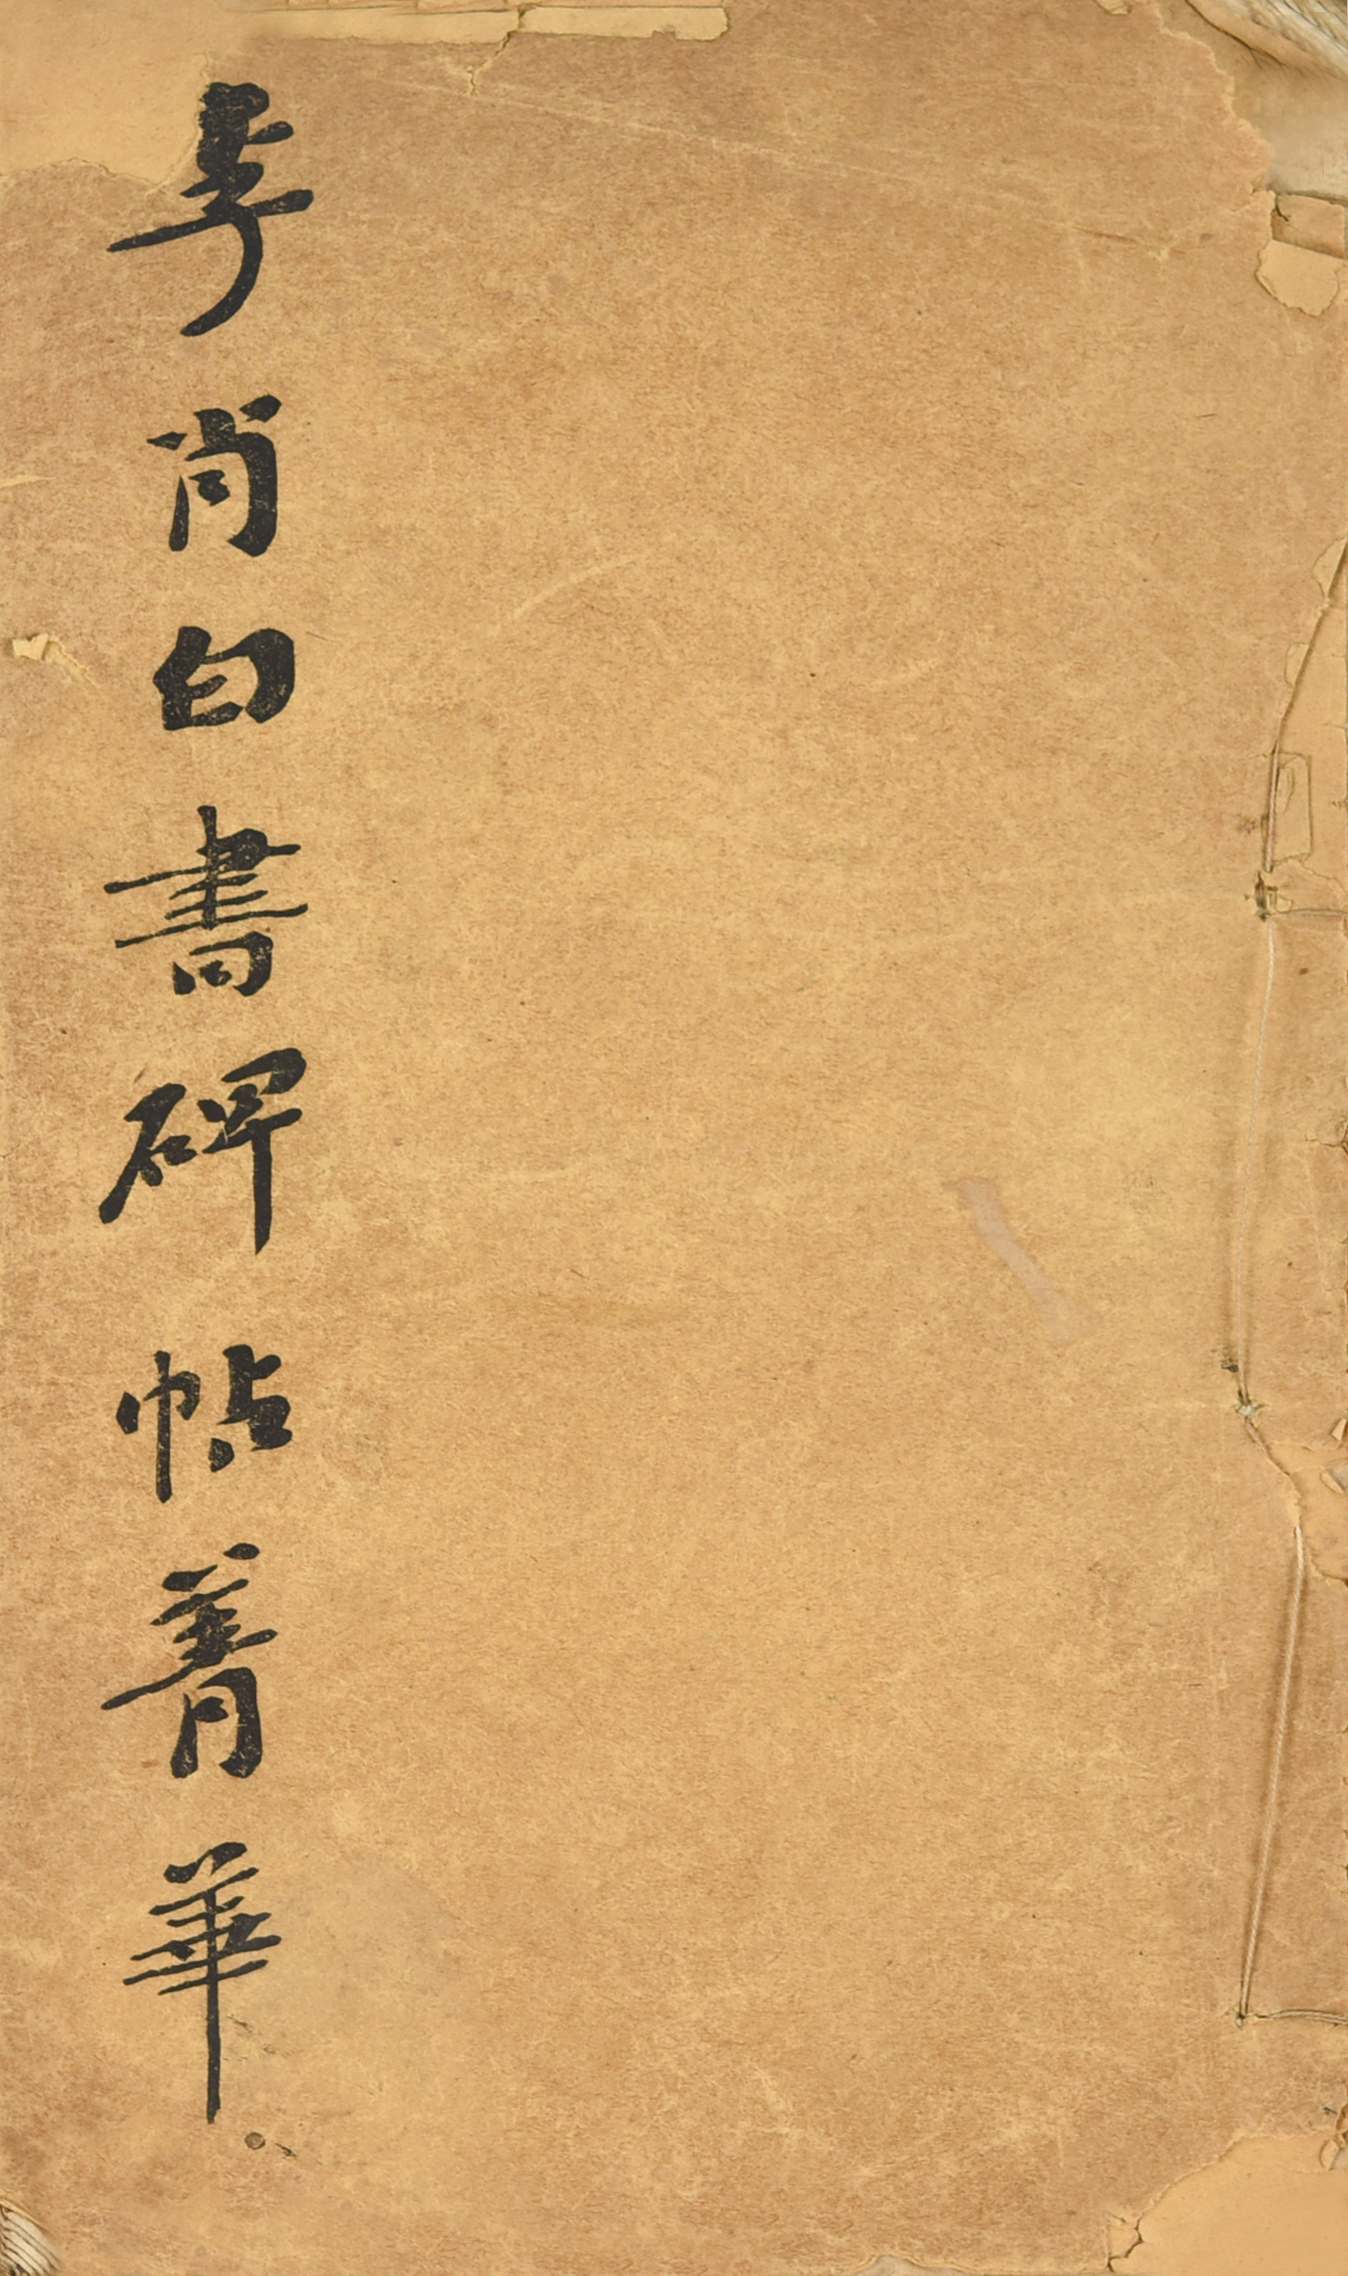 李肖白書碑帖菁華